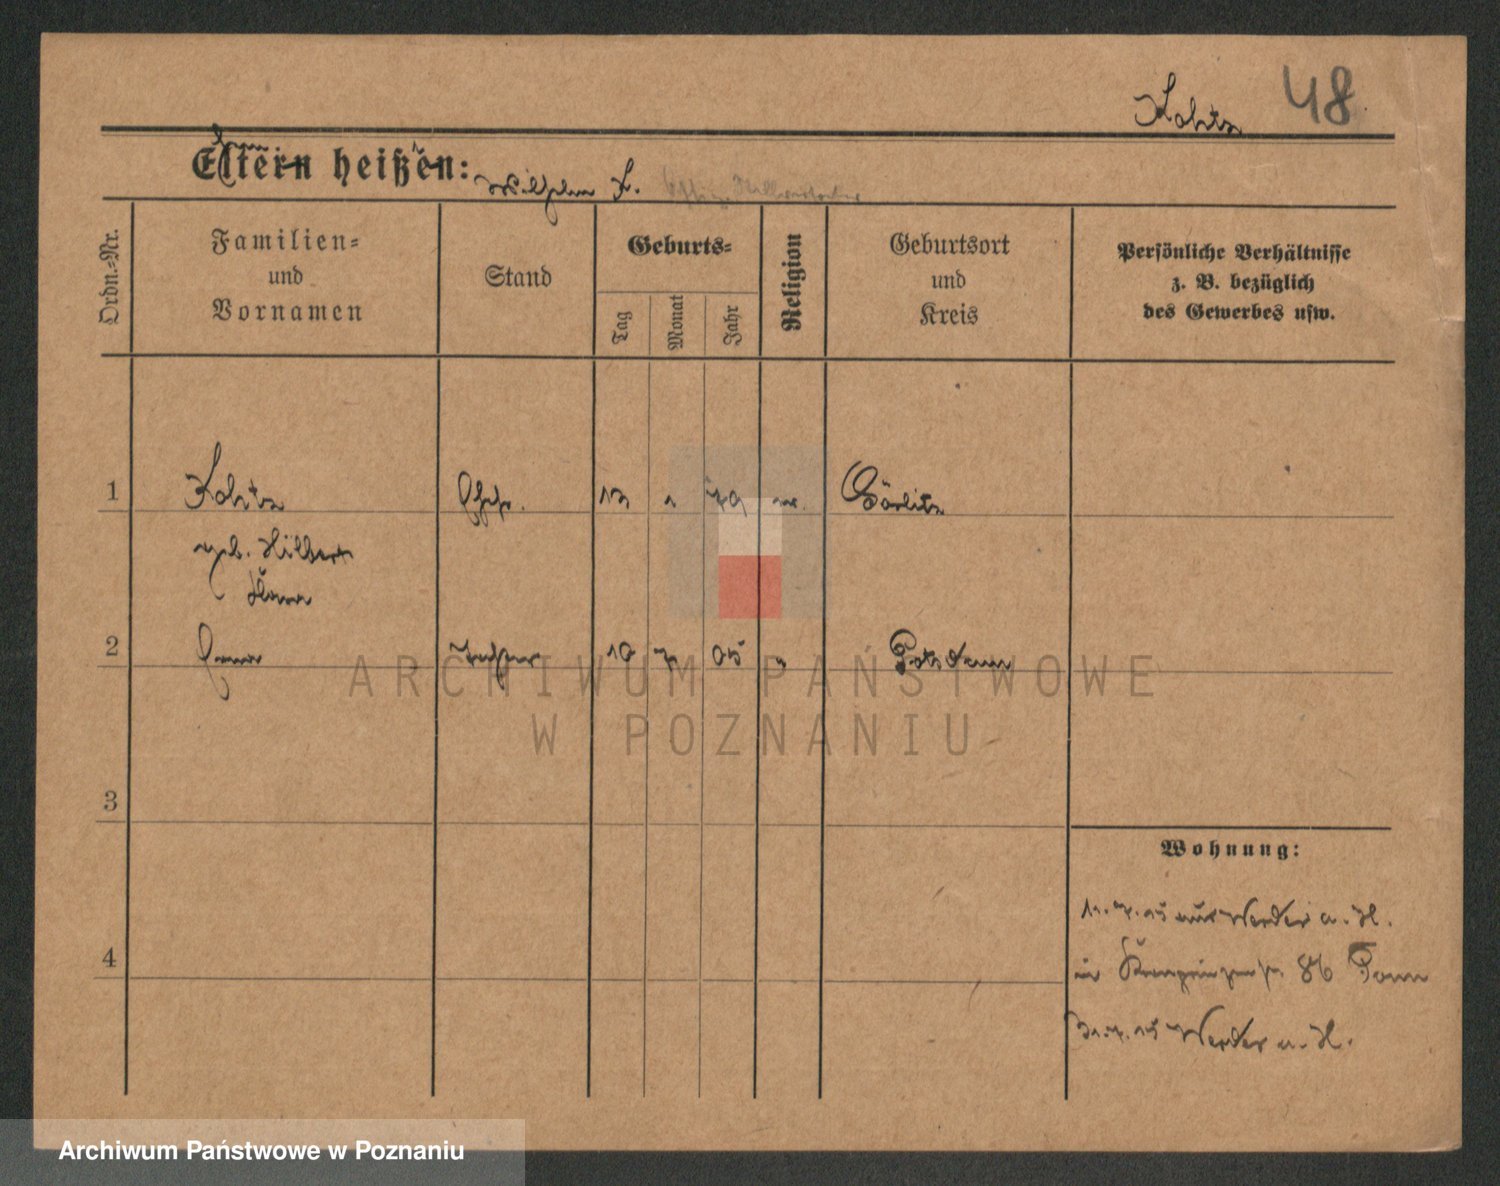 48
Kohtz
Eltern heißen: Wilhelm K.
Ordn.-Nr.
Familien-
und
Vornamen
Stand
Geburts-
Tag
Monat
Jahr
Religion
Geburtsort
und
Kreis
Persönliche Verhältnisse
z. B. bezüglich
des Gewerbes usw.
1 Kohtz Ehefr. 13 1 79 ev. Görlitz
geb. Hilbert
Klara
2 Tochter 10 7 05 " Potsdam
3
4
Wohnung:
11. 7. 15 aus Werder a. H.
in Kronprinzenstr. 86
31. 7. 15 Werder a. H.
ARCHIWUM PAŃSTWOWE
W POZNANIU
Archiwum Państwowe w Poznaniu